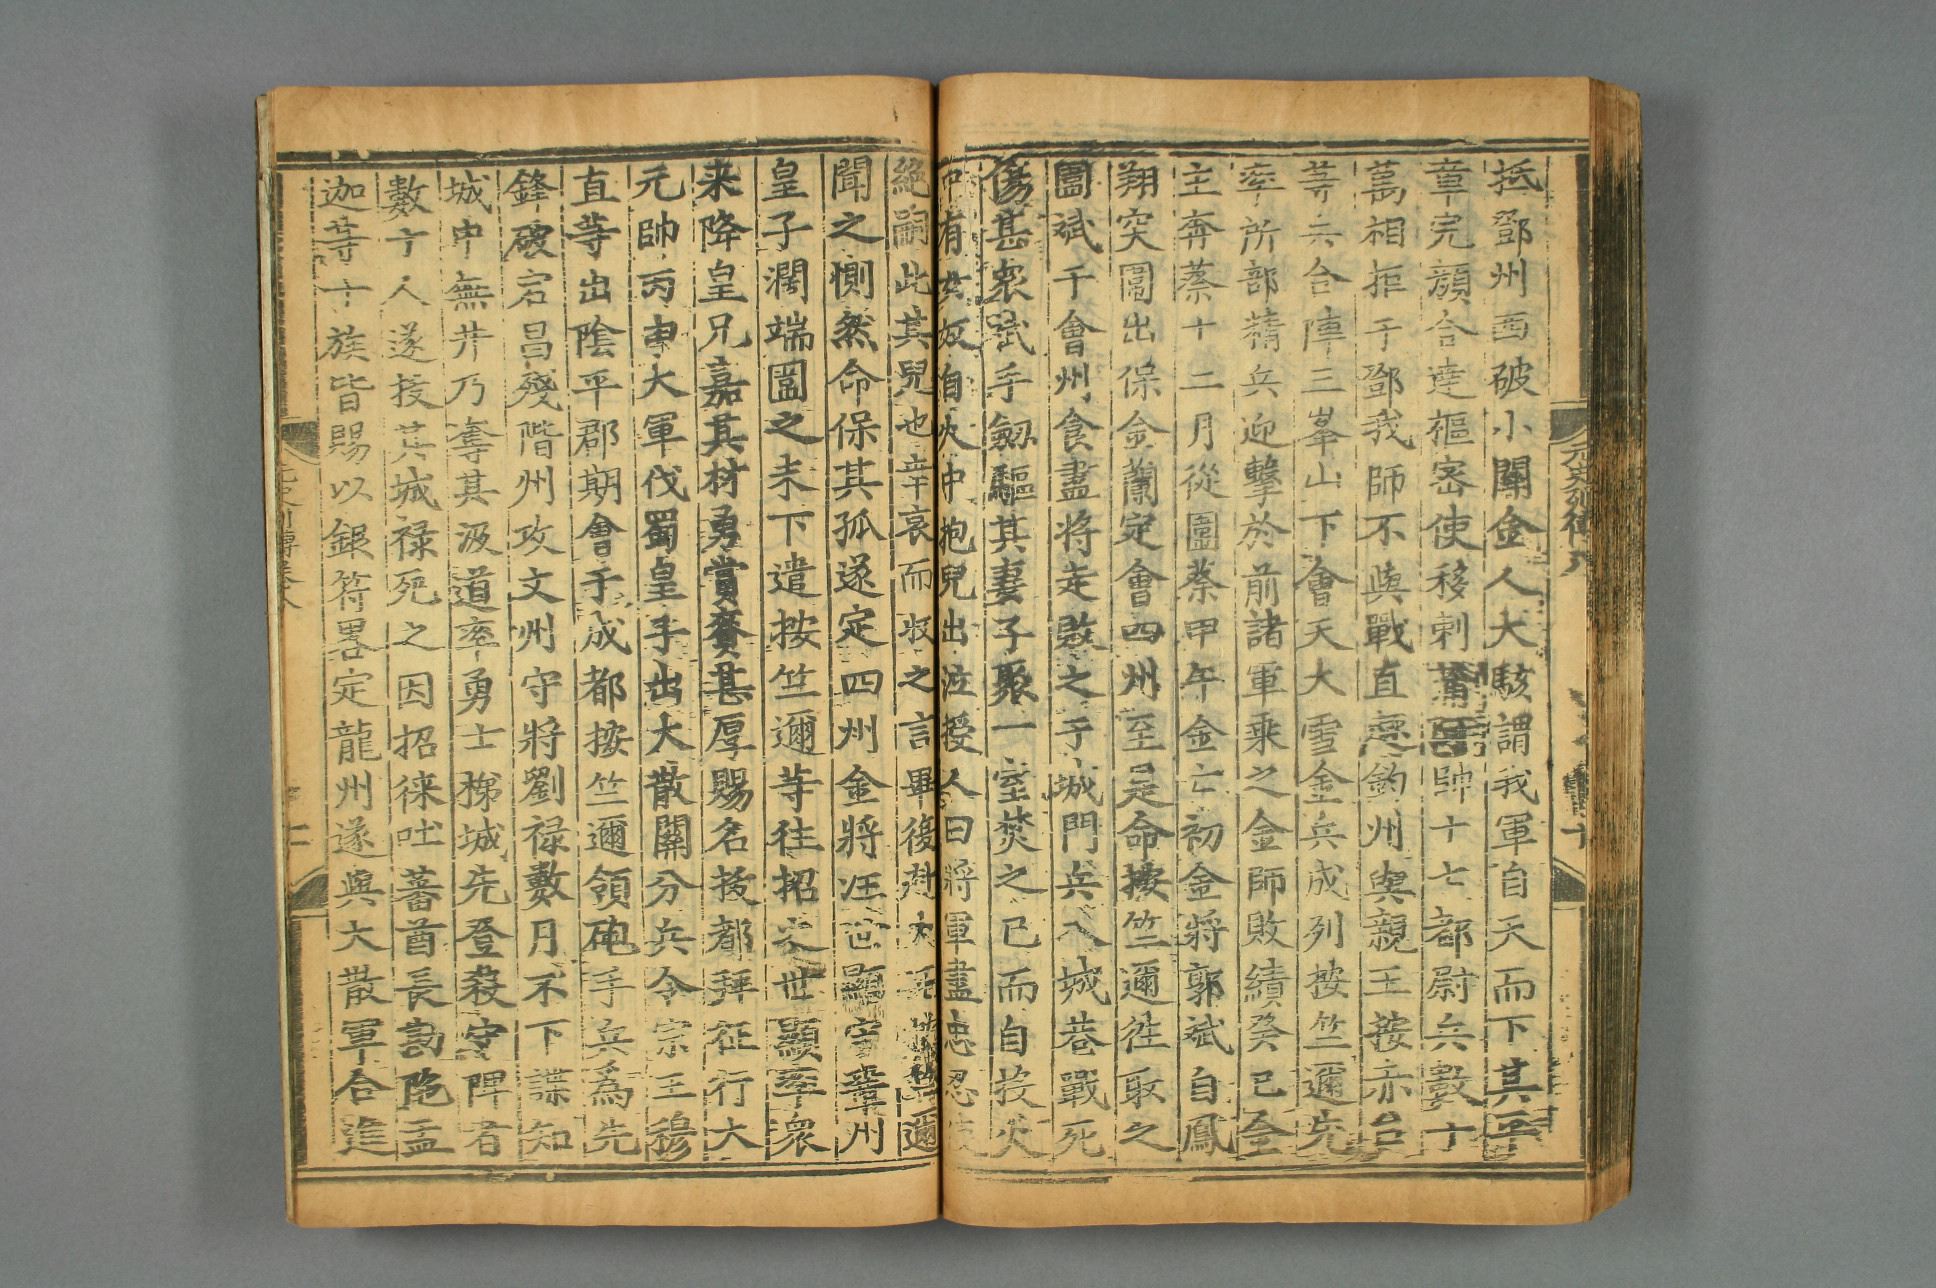 抵鄧州西破小關金人大駭謂我軍自天而下其平
章完顔合達樞密使移剌蒲瓦帥十七都尉兵數十
萬相拒于鄧我師不與戰直趣鈞州與親王按赤台
等兵合陣三峯山下會天大雪金兵成列按竺邇先
率所部精兵迎擊於前諸軍乘之金師敗績癸巳金
主奔蔡十二月從圍蔡甲午金亡初金將郭斌自鳳
翔突圍出保金蘭定會四州至是命按竺邇往取之
圍斌于會州食盡將走敗之于城門兵入城巷戰死
傷甚衆斌手劒驅其妻子聚一室焚之已而自投火
中有女奴自火中抱兒出泣授人曰將軍盡忠忍使
絶嗣此其兒也幸哀而收之言畢復赴火死按竺邇
聞之惻然命保其孤遂定四州金將汪世顯守鞏州
皇子濶端圍之未下遣按竺邇等往招之世顯率衆
来降皇兄嘉其材勇賞賚甚厚賜名拔都拜征行大
元帥丙申大軍伐蜀皇子出大散關分兵令宗王穆
直等出陰平郡期會于成都按竺邇領砲手兵爲先
鋒破宕昌殘階州攻文州守將劉禄數月不下諜知
城中無井乃奪其汲道率勇士梯城先登殺守陴者
數十人遂拔其城禄死之因招徠吐蕃酋長勘陁孟
迦等十族皆賜以銀符畧定龍州遂與大散軍合進
元史列傳八
十